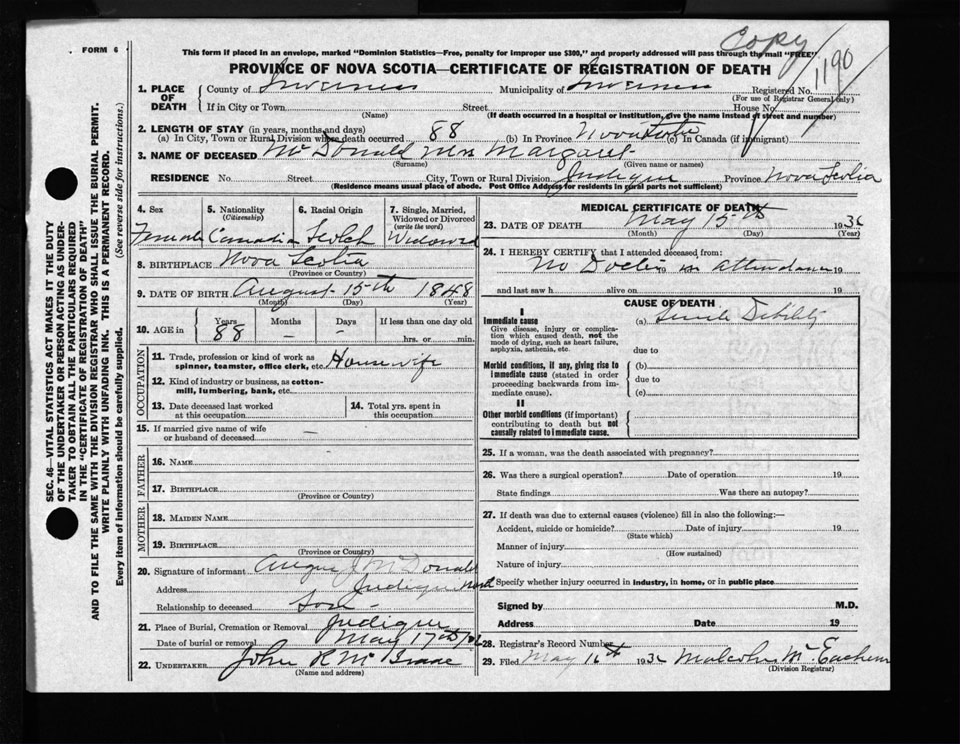 FORM 6
Copy
1190
This form if placed in an envelope, marked "Dominion Statistics—Free, penalty for improper use $300," and properly addressed will pass through the mail "FREE"
PROVINCE OF NOVA SCOTIA—CERTIFICATE OF REGISTRATION OF DEATH
1. PLACE OF DEATH County of Inverness Municipality of Inverness Registered No.
(For use of Registrar General only)
If in City or Town Street House No.
(Name) (If death occurred in a hospital or institution, give the name instead of street and number)
2. LENGTH OF STAY (in years, months and days)
(a) In City, Town or Rural Division where death occurred 88 (b) In Province Nova Scotia (c) In Canada (if immigrant)
3. NAME OF DECEASED McDonald Mrs Margaret
(Surname) (Given name or names)
RESIDENCE No. Street City, Town or Rural Division Judique Province Nova Scotia
(Residence means usual place of abode. Post Office Address for residents in rural parts not sufficient)
4. Sex 5. Nationality (Citizenship) 6. Racial Origin 7. Single, Married, Widowed or Divorced (write the word)
Female Canadian Scotch Widowed
8. BIRTHPLACE Nova Scotia
(Province or Country)
9. DATE OF BIRTH August 15th 1848
(Month) (Day) (Year)
10. AGE in Years Months Days If less than one day old
88 — hrs. or min.
OCCUPATION
11. Trade, profession or kind of work as spinner, teamster, office clerk, etc. Housewife
12. Kind of industry or business, as cotton-mill, lumbering, bank, etc.
13. Date deceased last worked at this occupation
14. Total yrs. spent in this occupation
15. If married give name of wife or husband of deceased —
FATHER
16. NAME
17. BIRTHPLACE
(Province or Country)
MOTHER
18. MAIDEN NAME
19. BIRTHPLACE
(Province or Country)
20. Signature of informant Angus J McDonald
Address Judique Nord
Relationship to deceased Son —
21. Place of Burial, Cremation or Removal Judique
Date of burial or removal May 17th
22. UNDERTAKER John R McIsaac
(Name and address)
MEDICAL CERTIFICATE OF DEATH
23. DATE OF DEATH May 15th 1936
(Month) (Day) (Year)
24. I HEREBY CERTIFY that I attended deceased from:
No Doctor in attendance 19
and last saw h alive on 19
CAUSE OF DEATH
I
Immediate cause (a) Senile Debility
Give disease, injury or complication which caused death, not the mode of dying, such as heart failure, asphyxia, asthenia, etc.
due to
Morbid conditions, if any, giving rise to immediate cause (stated in order proceeding backwards from immediate cause).
(b)
due to
(c)
II
Other morbid conditions (if important) contributing to death but not causally related to immediate cause.
25. If a woman, was the death associated with pregnancy?
26. Was there a surgical operation? Date of operation 19
State findings Was there an autopsy?
27. If death was due to external causes (violence) fill in also the following:—
Accident, suicide or homicide? Date of injury 19
(State which)
Manner of injury
(How sustained)
Nature of injury
Specify whether injury occurred in industry, in home, or in public place
Signed by M.D.
Address Date 19
28. Registrar's Record Number
29. Filed May 16th 1936 Malcolm McEachern
(Division Registrar)
SEC. 46—VITAL STATISTICS ACT MAKES IT THE DUTY
OF THE UNDERTAKER OR PERSON ACTING AS UNDER-
TAKER TO OBTAIN ALL THE PARTICULARS REQUIRED
IN THE "CERTIFICATE OF REGISTRATION OF DEATH"
AND TO FILE THE SAME WITH THE DIVISION REGISTRAR WHO SHALL ISSUE THE BURIAL PERMIT.
WRITE PLAINLY WITH UNFADING INK. THIS IS A PERMANENT RECORD.
Every item of information should be carefully supplied. (See reverse side for instructions.)